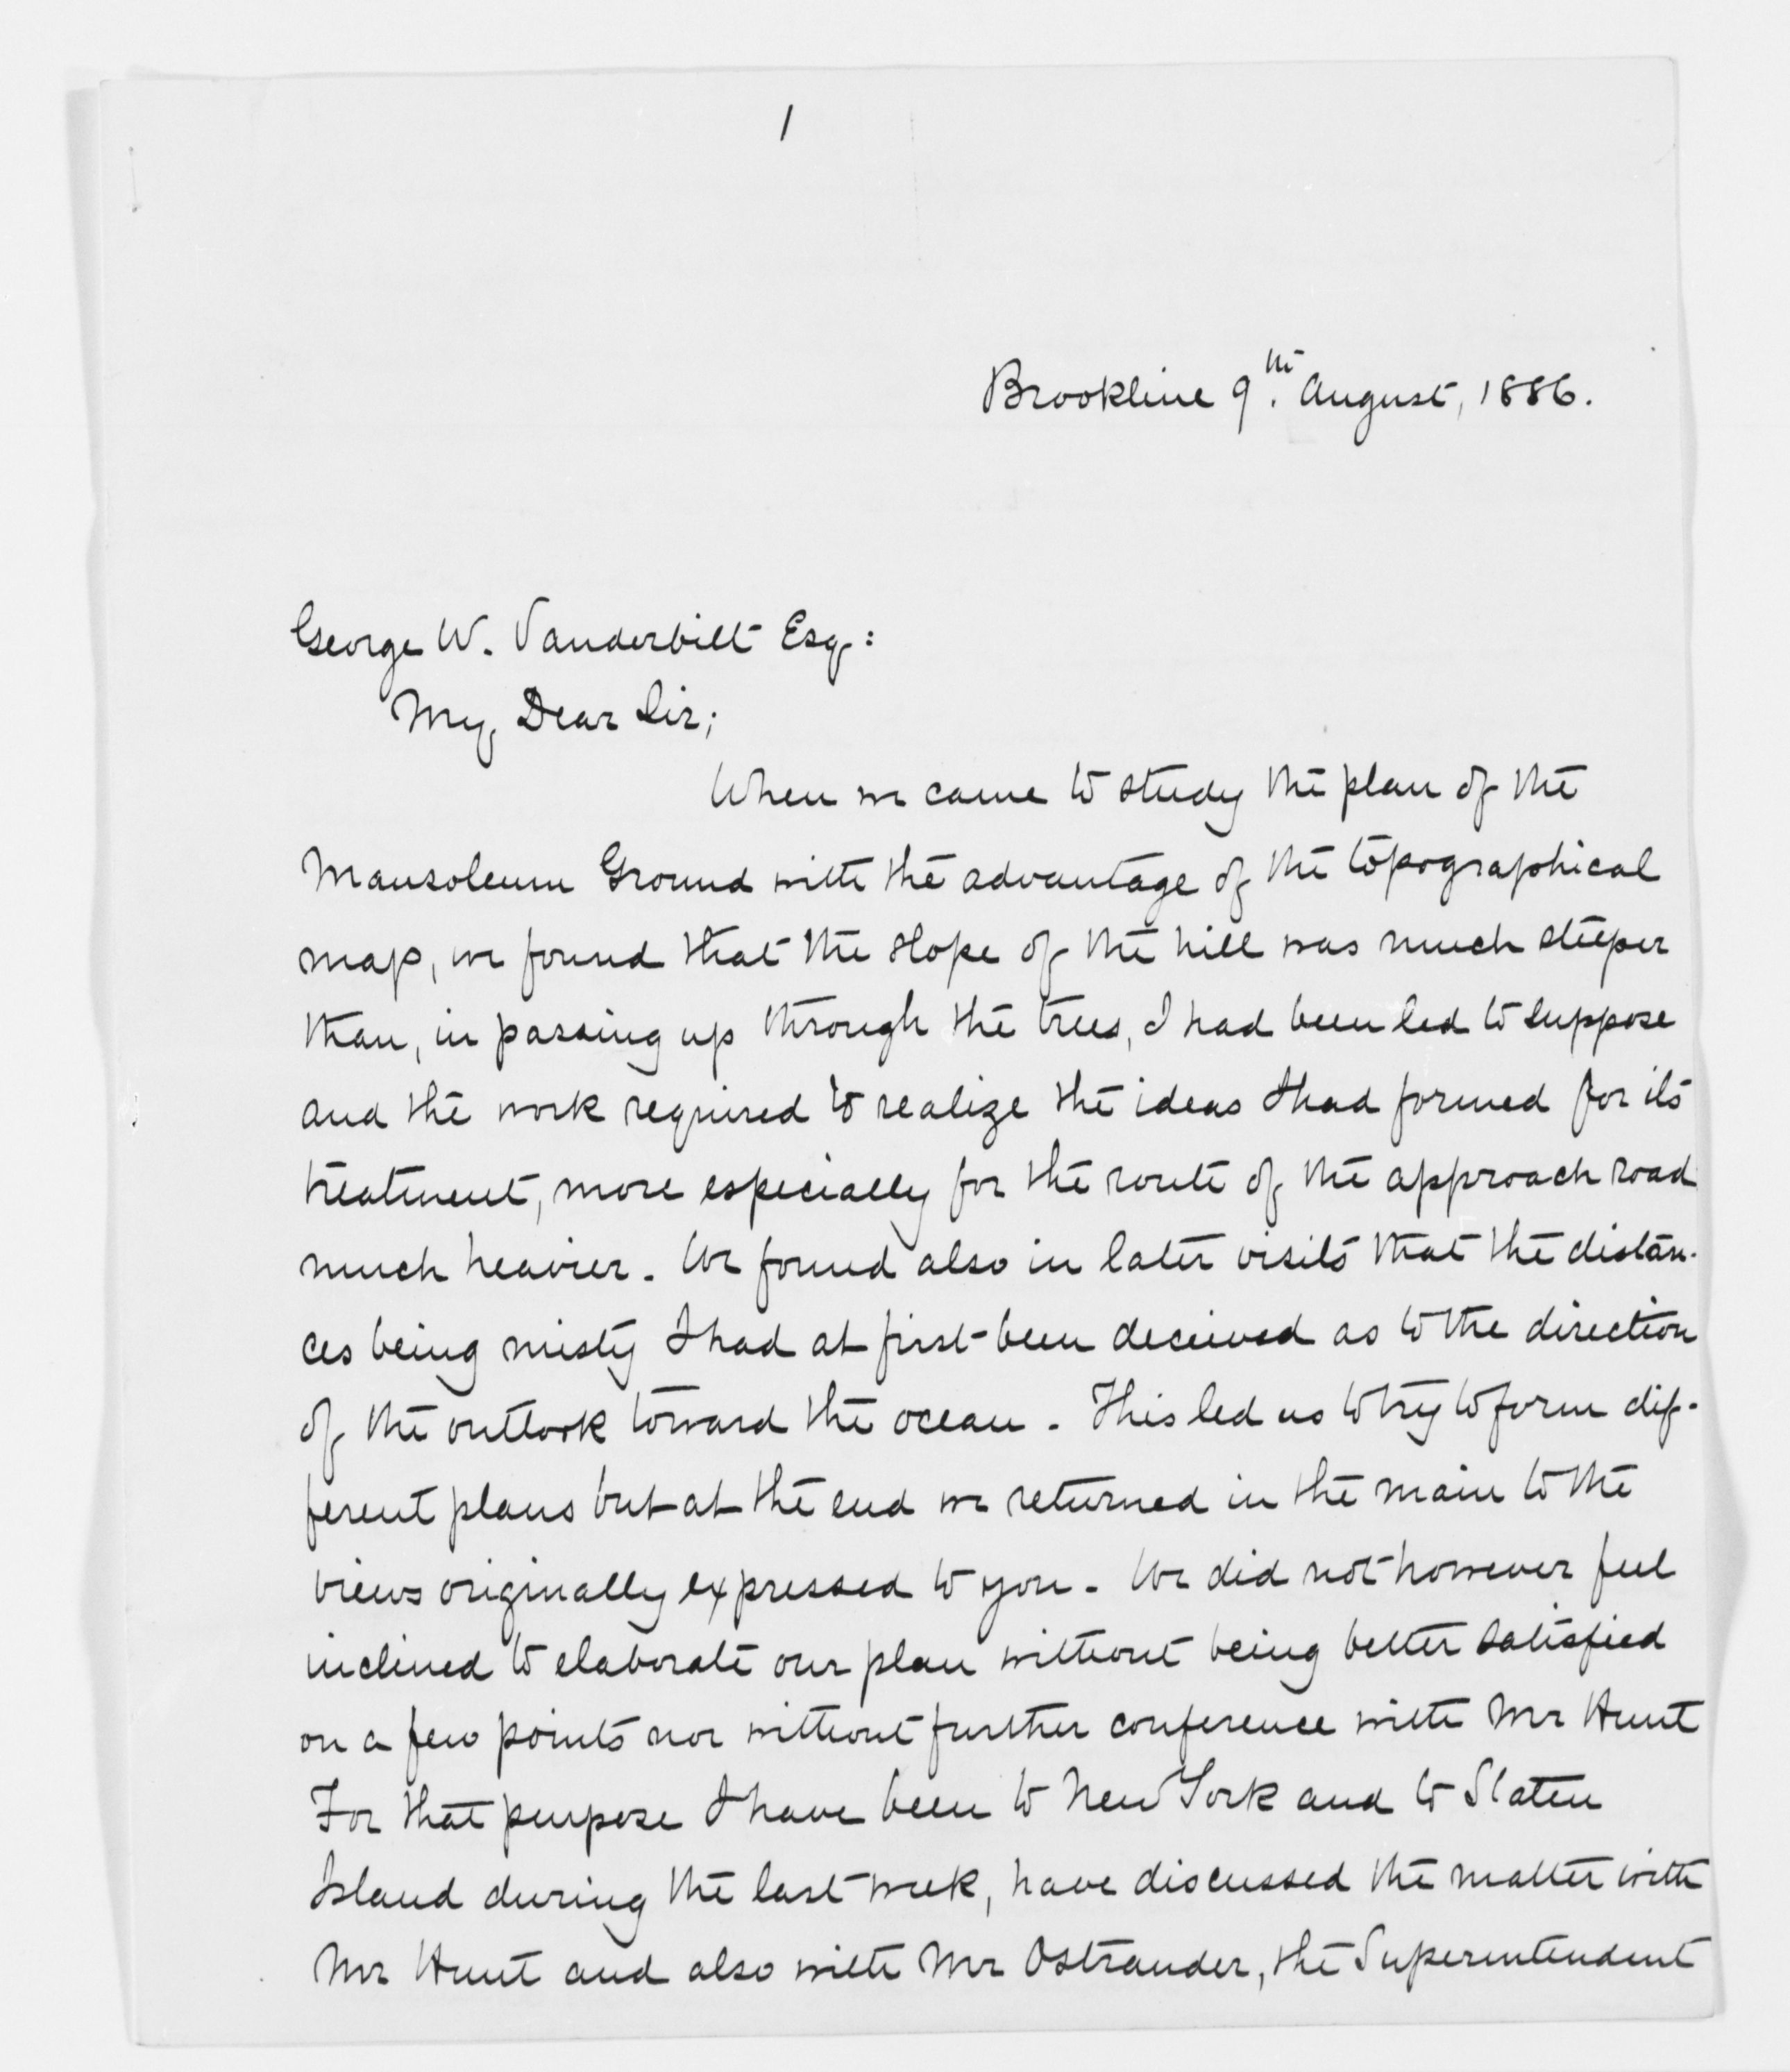 1
Brookline 9th. August, 1886.
George W. Vanderbilt Esq:
My Dear Sir;
When we came to study the plan of the
Mausoleum Ground with the advantage of the topographical
map, we found that the slope of the hill was much steeper
than, in passing up through the trees, I had been led to suppose
and the work required to realize the ideas I had formed for its
treatment, more especially for the route of the approach road
much heavier. We found also in later visits that the distan-
ces being misty I had at first been deceived as to the direction
of the outlook toward the ocean. This led us to try to form dif-
ferent plans but at the end we returned in the main to the
views originally expressed to you. We did not however feel
inclined to elaborate our plan without being better satisfied
on a few points nor without further conference with Mr Hunt
For that purpose I have been to New York and to Staten
Island during the last week, have discussed the matter with
Mr Hunt and also with Mr Ostrander, the Superintendent